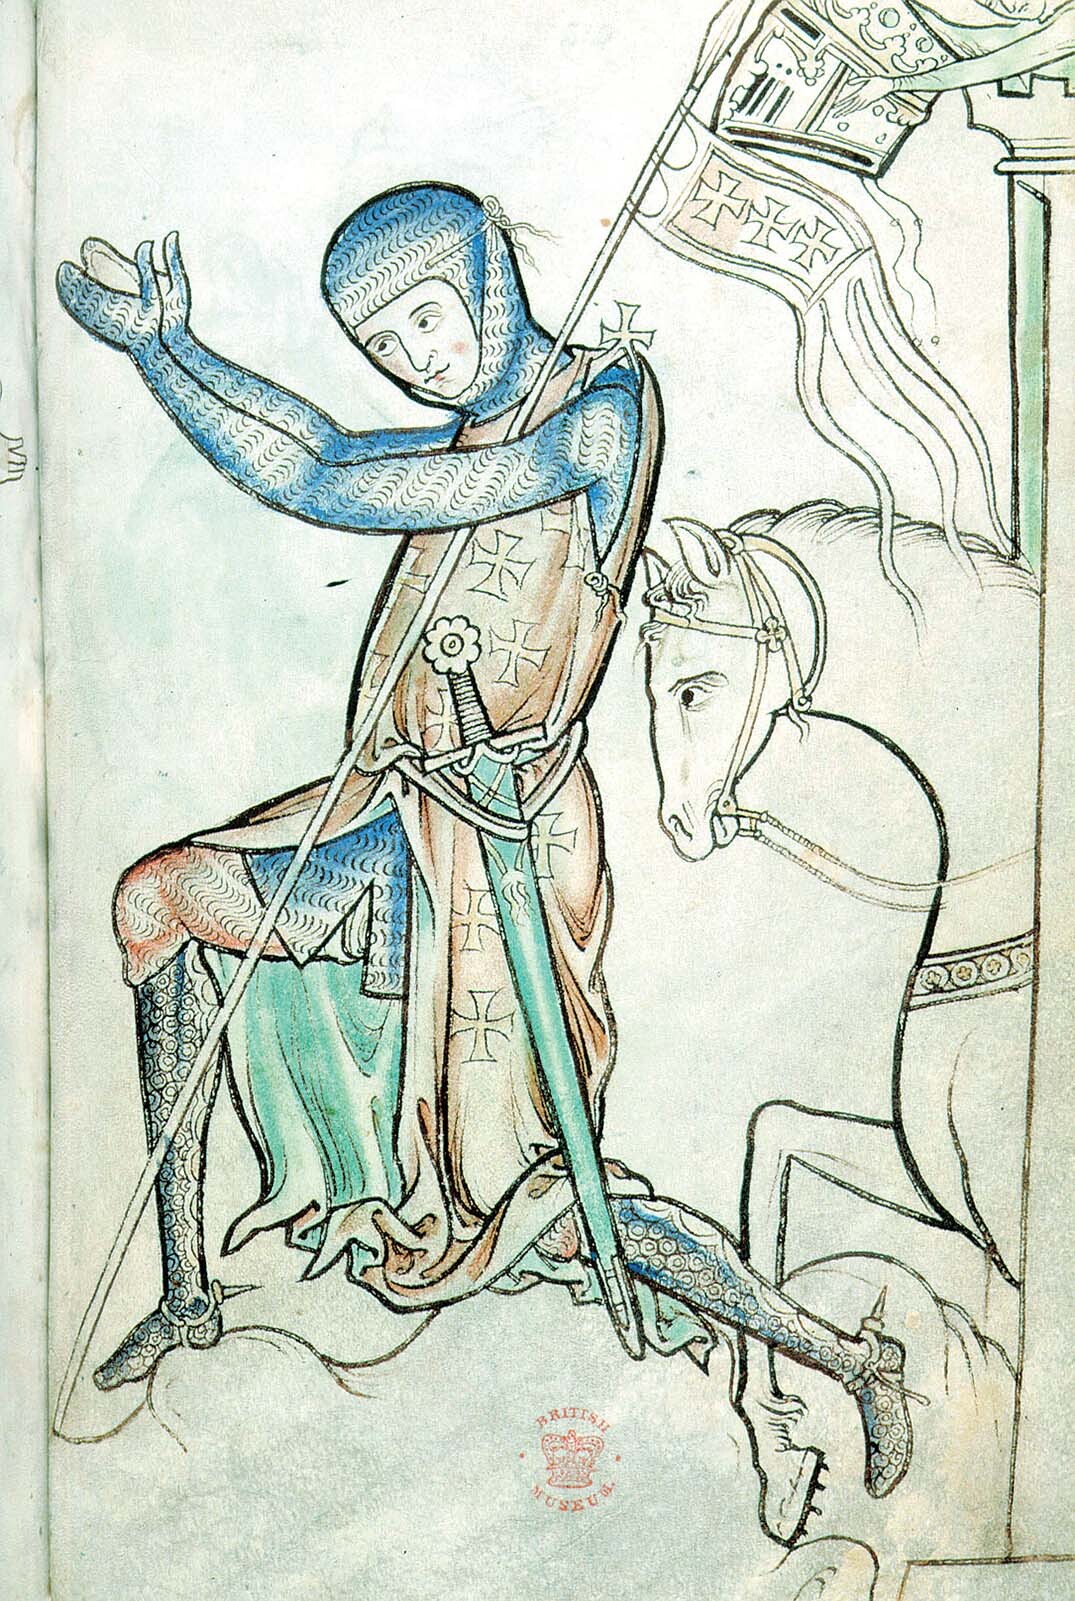 BRITISH
MUSEUM